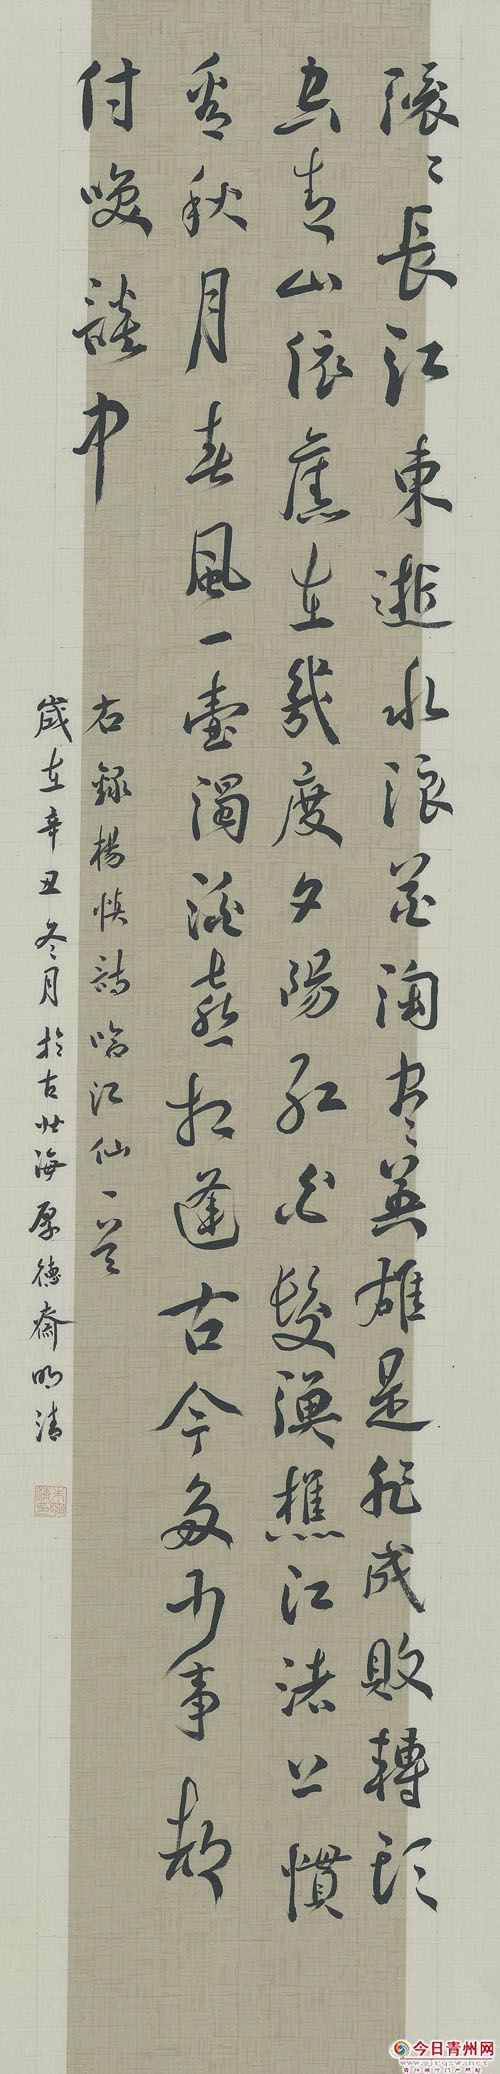 滚〻長江東逝水浪花淘尽英雄是非成敗轉頭
空青山依舊在幾度夕陽紅白髮漁樵江渚上慣
看秋月春風一壺濁酒喜相逢古今多少事都
付咲談中
右録楊慎詩臨江仙一首
歲在辛丑冬月於古北海厚德齋明清
今日青州网
www.jrqzw.net